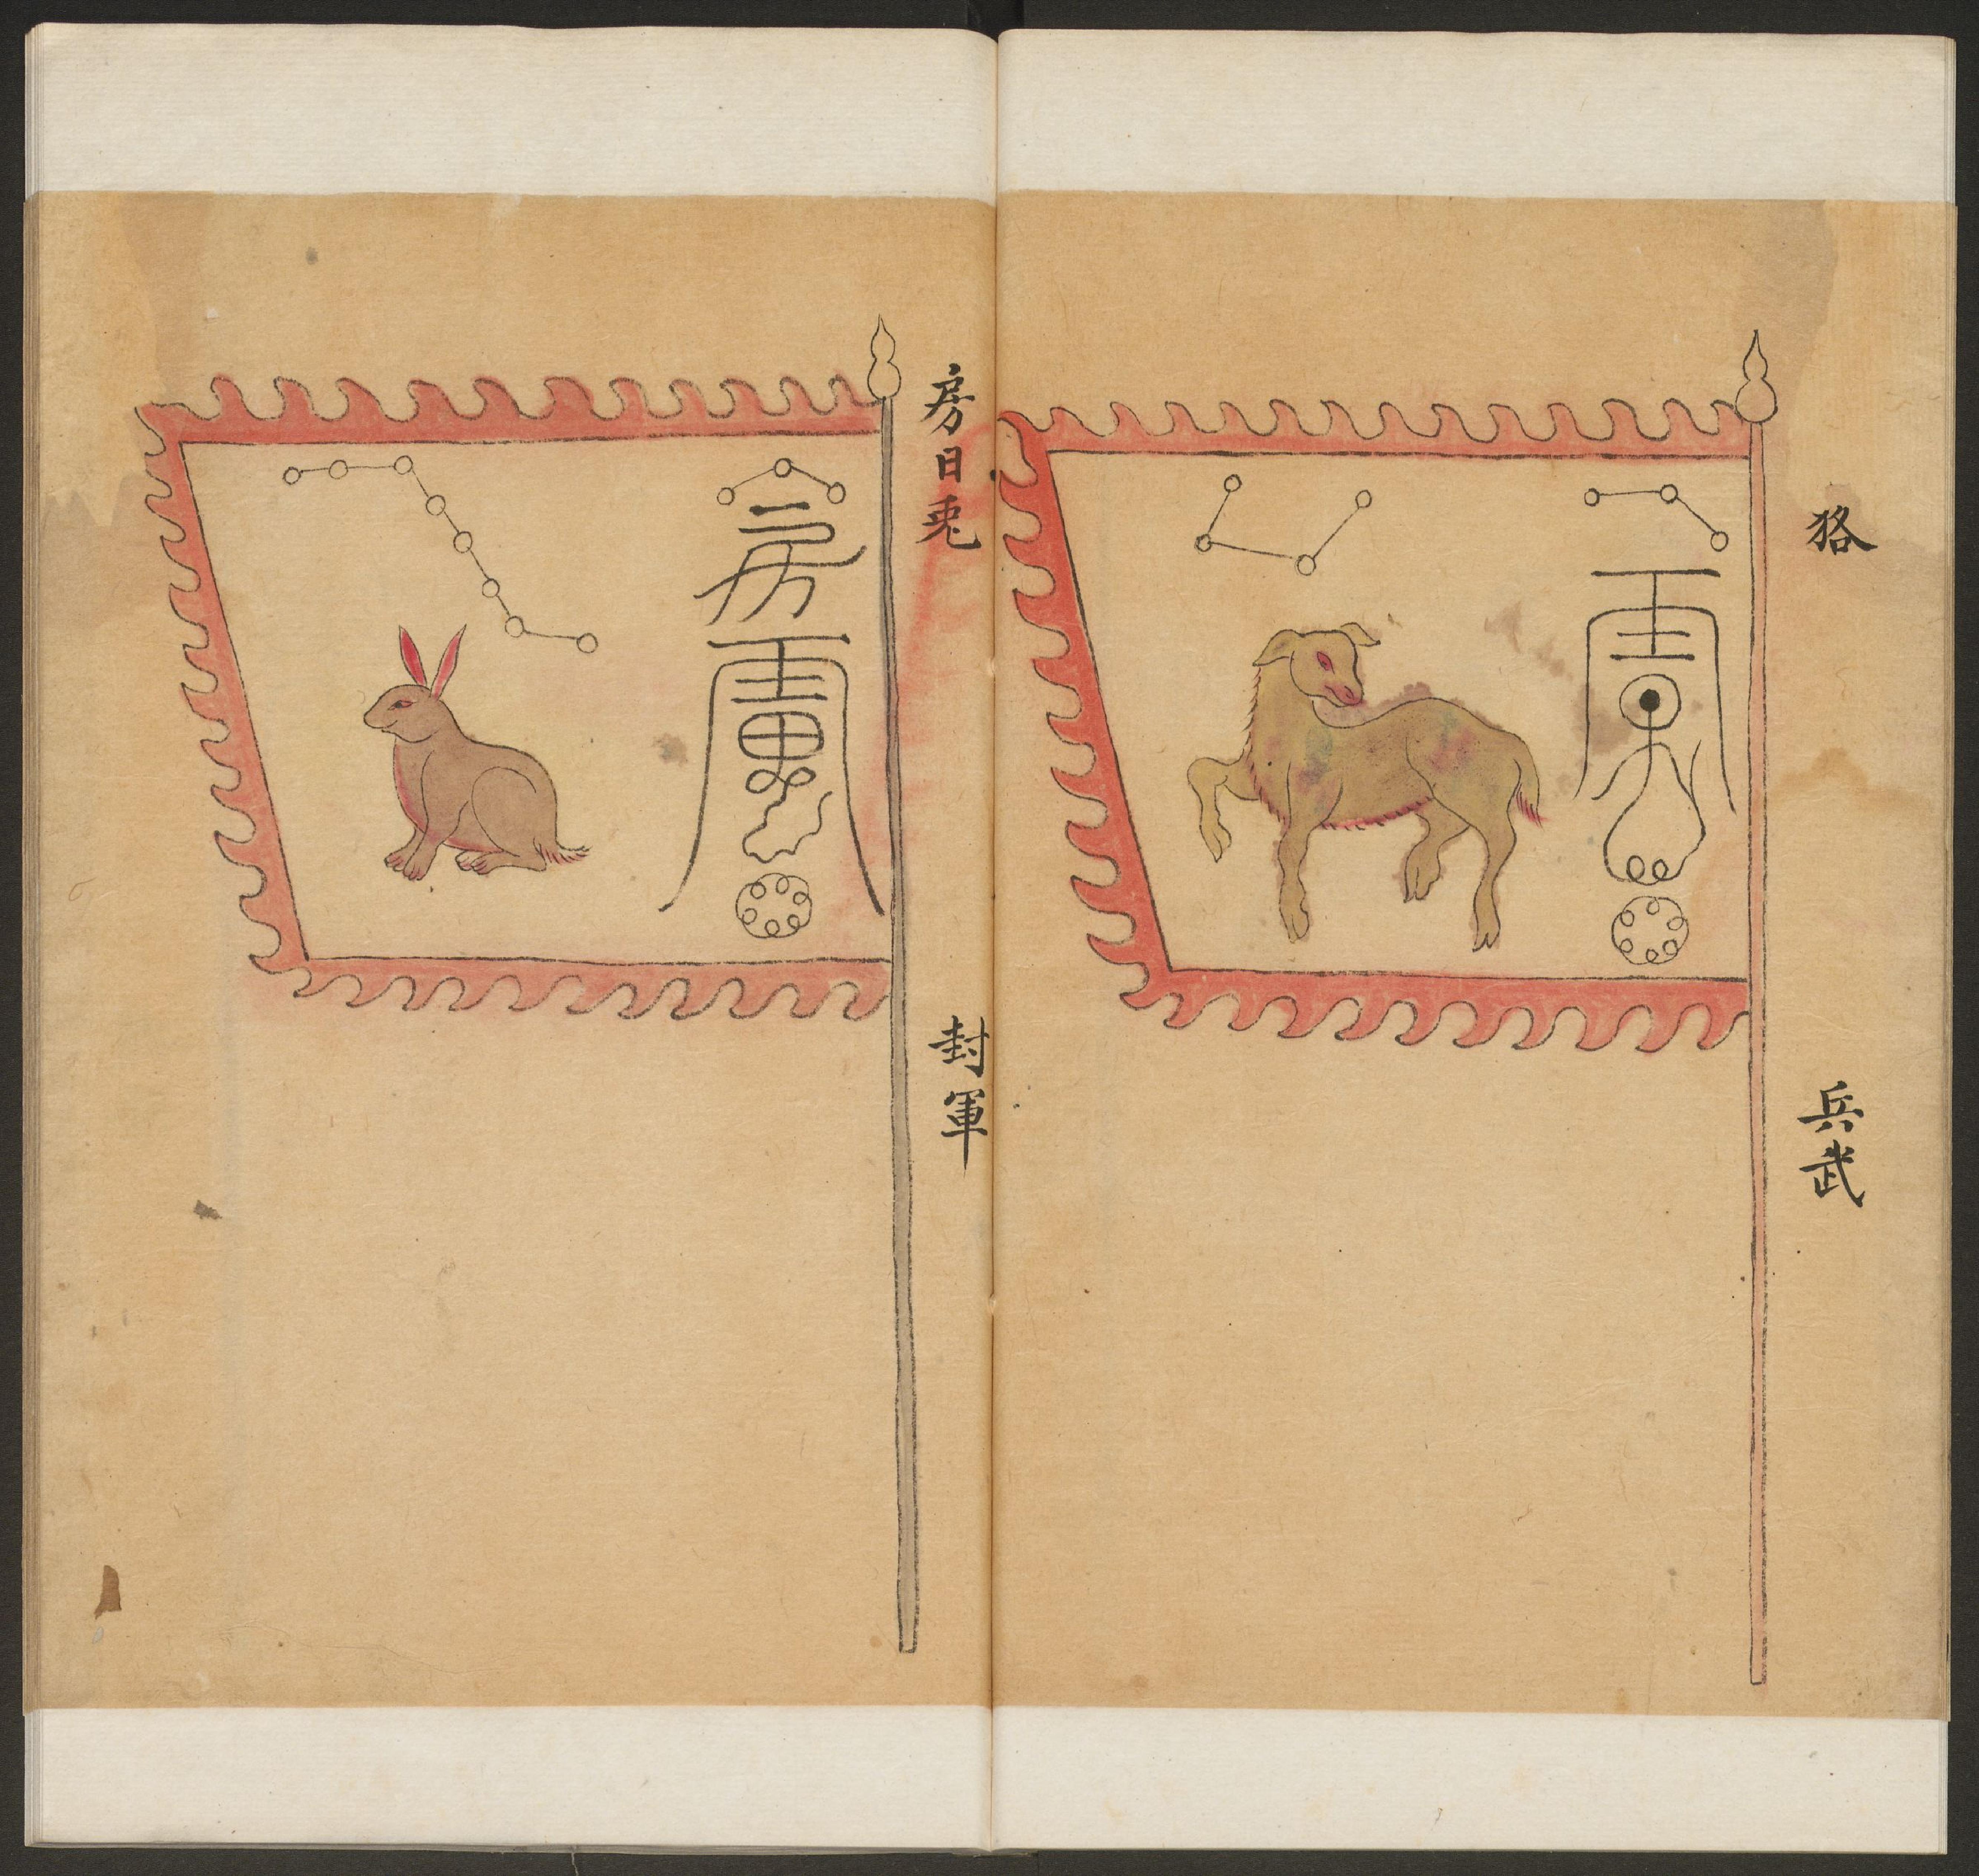 狢
兵武
房日兎
封軍
房